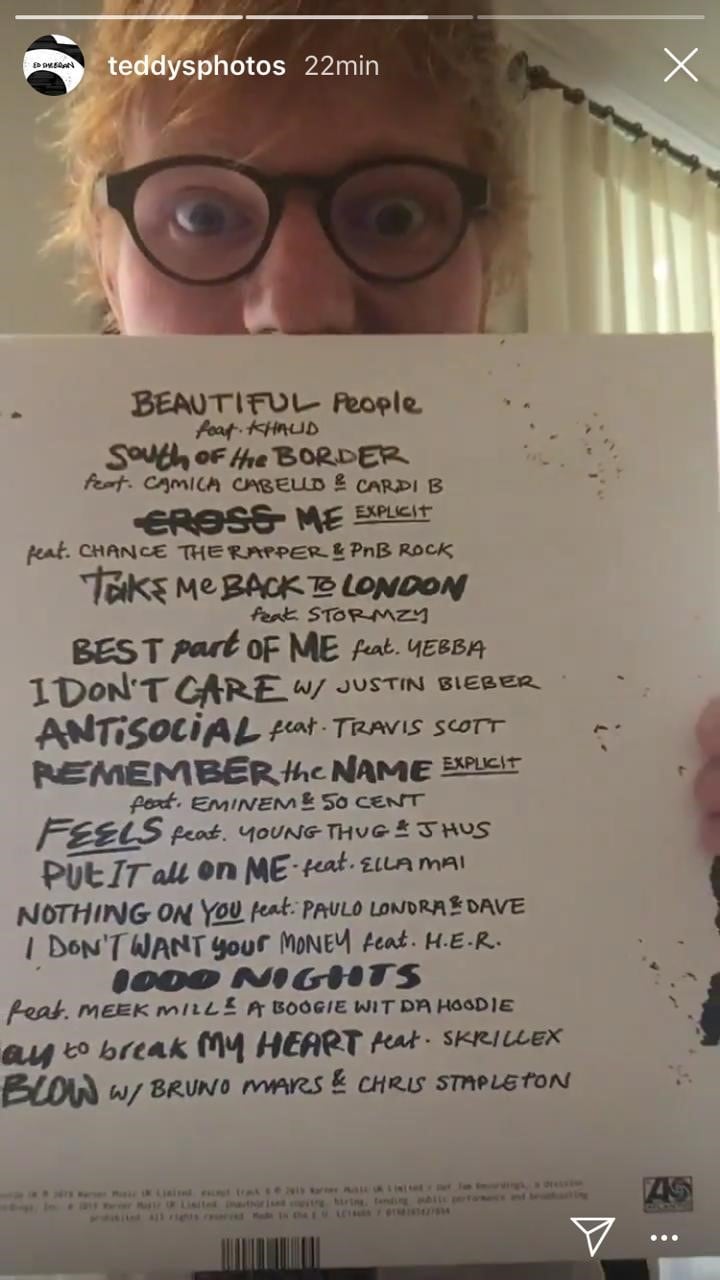 ED SHEERAN
teddysphotos 22min
BEAUTIFUL People
feat. KHALID
South OF the BORDER
feat. CAMILA CABELLO & CARDI B
CROSS ME EXPLICIT
feat. CHANCE THE RAPPER & PnB ROCK
Take Me BACK TO LONDON
feat. STORMZY
BEST part OF ME feat. YEBBA
I DON'T CARE w/ JUSTIN BIEBER
ANTISOCIAL feat. TRAVIS SCOTT
REMEMBER the NAME EXPLICIT
feat. EMINEM & 50 CENT
FEELS feat. YOUNG THUG & J HUS
PUt IT all on ME - feat. ELLA MAI
NOTHING ON YOU feat. PAULO LONDRA & DAVE
I DON'T WANT your MONEY feat. H.E.R.
1000 NIGHTS
feat. MEEK MILL & A BOOGIE WIT DA HOODIE
ay to break MY HEART feat. SKRILLEX
BLOW w/ BRUNO MARS & CHRIS STAPLETON
UK ℗ 2019 Warner Music UK Limited, except track 6 ℗ 2019 Warner Music UK Limited / Def Jam Recordings, a division
Inc. © 2019 Warner Music UK Limited. Unauthorised copying, hiring, lending, public performance and broadcasting
prohibited. All rights reserved. Made in the E.U.
ATLANTIC